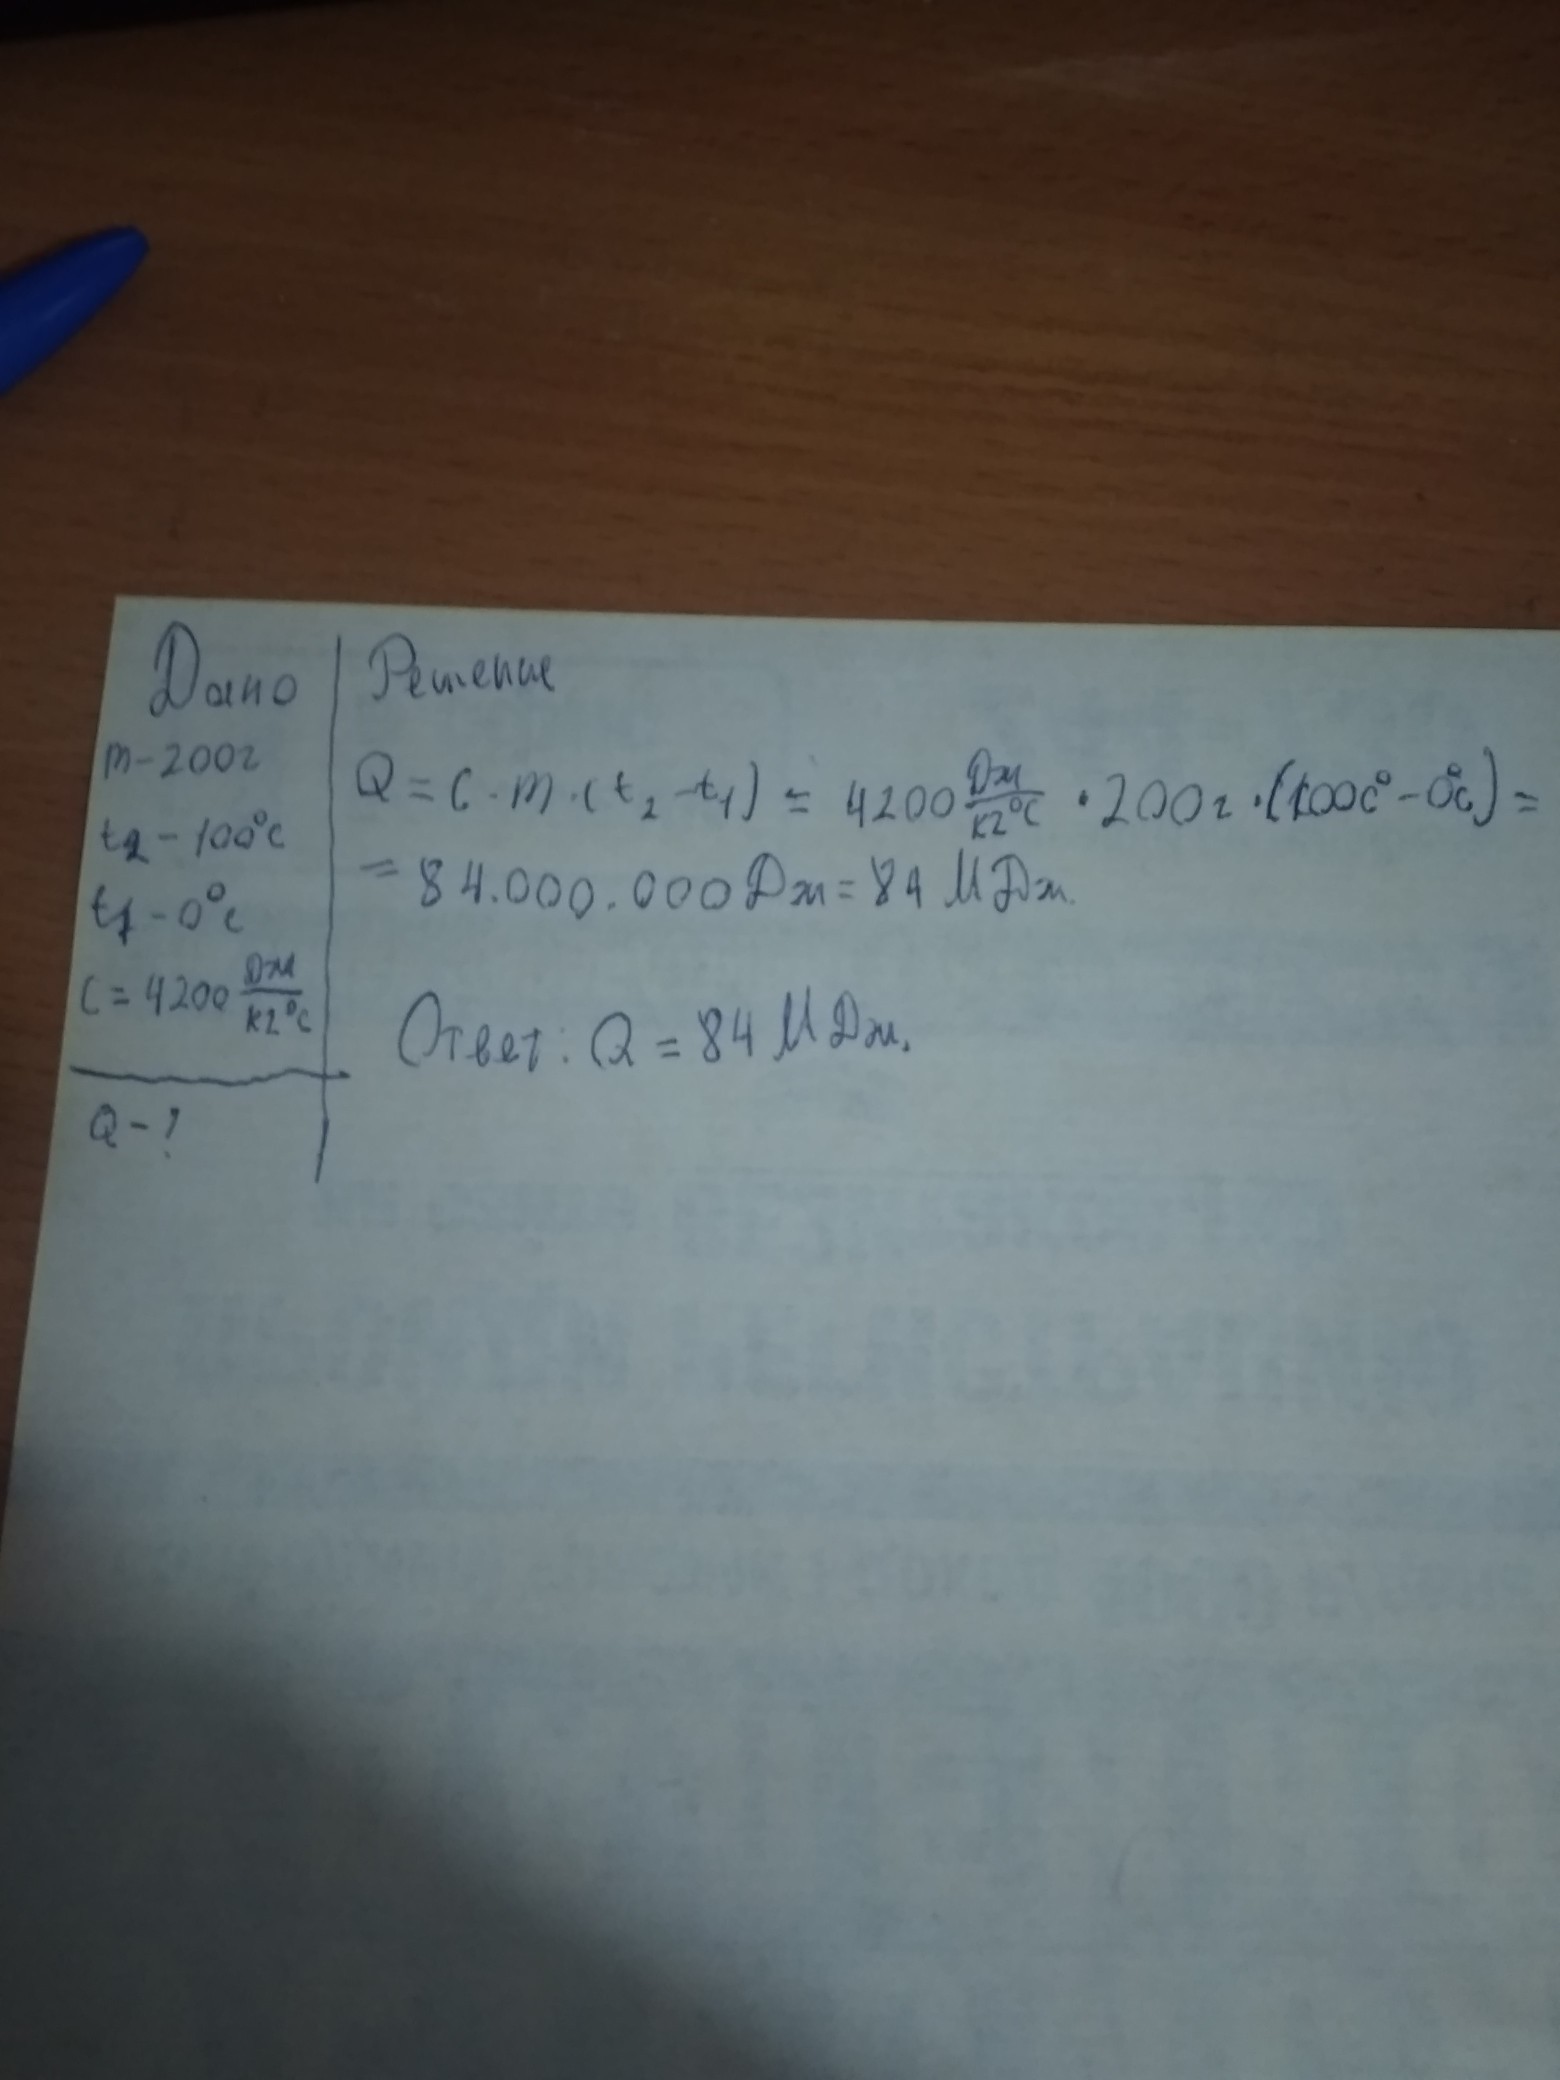 Дано
Решение
m-200г
t2-100°c
t1-0°c
C=4200 Дж/кг°c
Q-?
Q=C·m·(t2-t1)=4200 Дж/кг°C·200г·(100c°-0°c)=
=84.000.000Дж=84 МДж.
Ответ: Q=84 МДж.